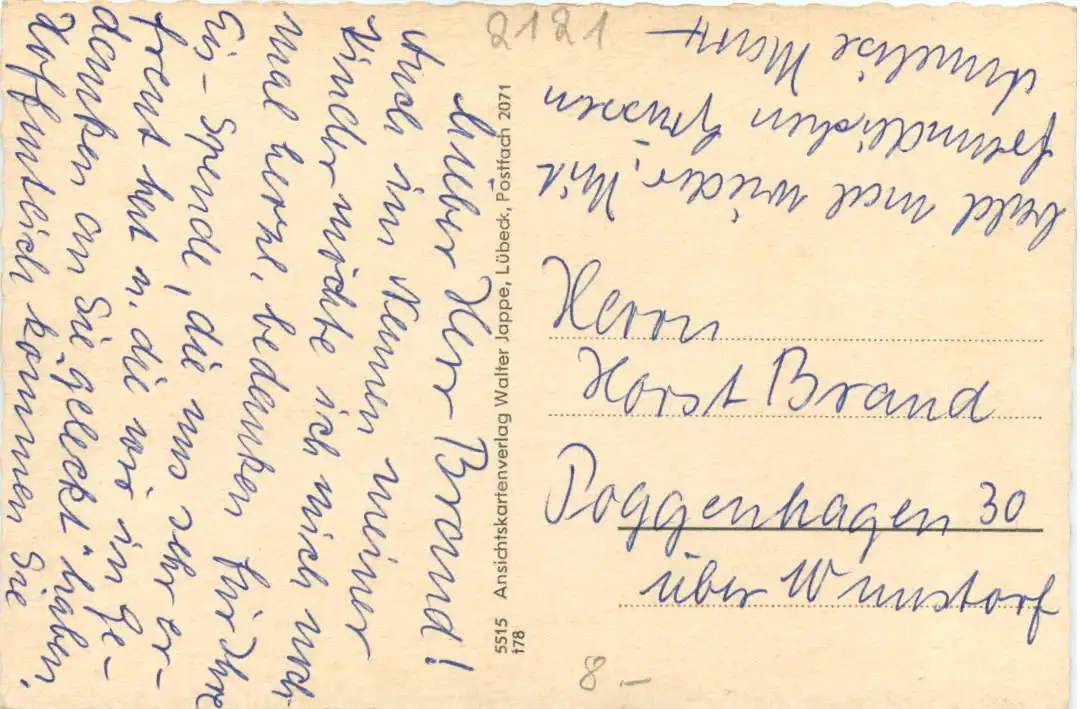 Lieber Herr Brand!
Auch im Namen meiner
Kinder möchte ich mich noch
mal herzl. bedanken für Ihre
Eis-Spende, die uns sehr er-
freut hat u. die wir in Ge-
danken an Sie „geleckt“ haben.
Hoffentlich kommen Sie
bald mal wieder. Mit
freundlichen Grüssen
Annelise
2121
5515 Ansichtskartenverlag Walter Jappe, Lübeck, Postfach 2071
t78
Herrn
Horst Brand
Poggenhagen 30
über Wunstorf
8.–